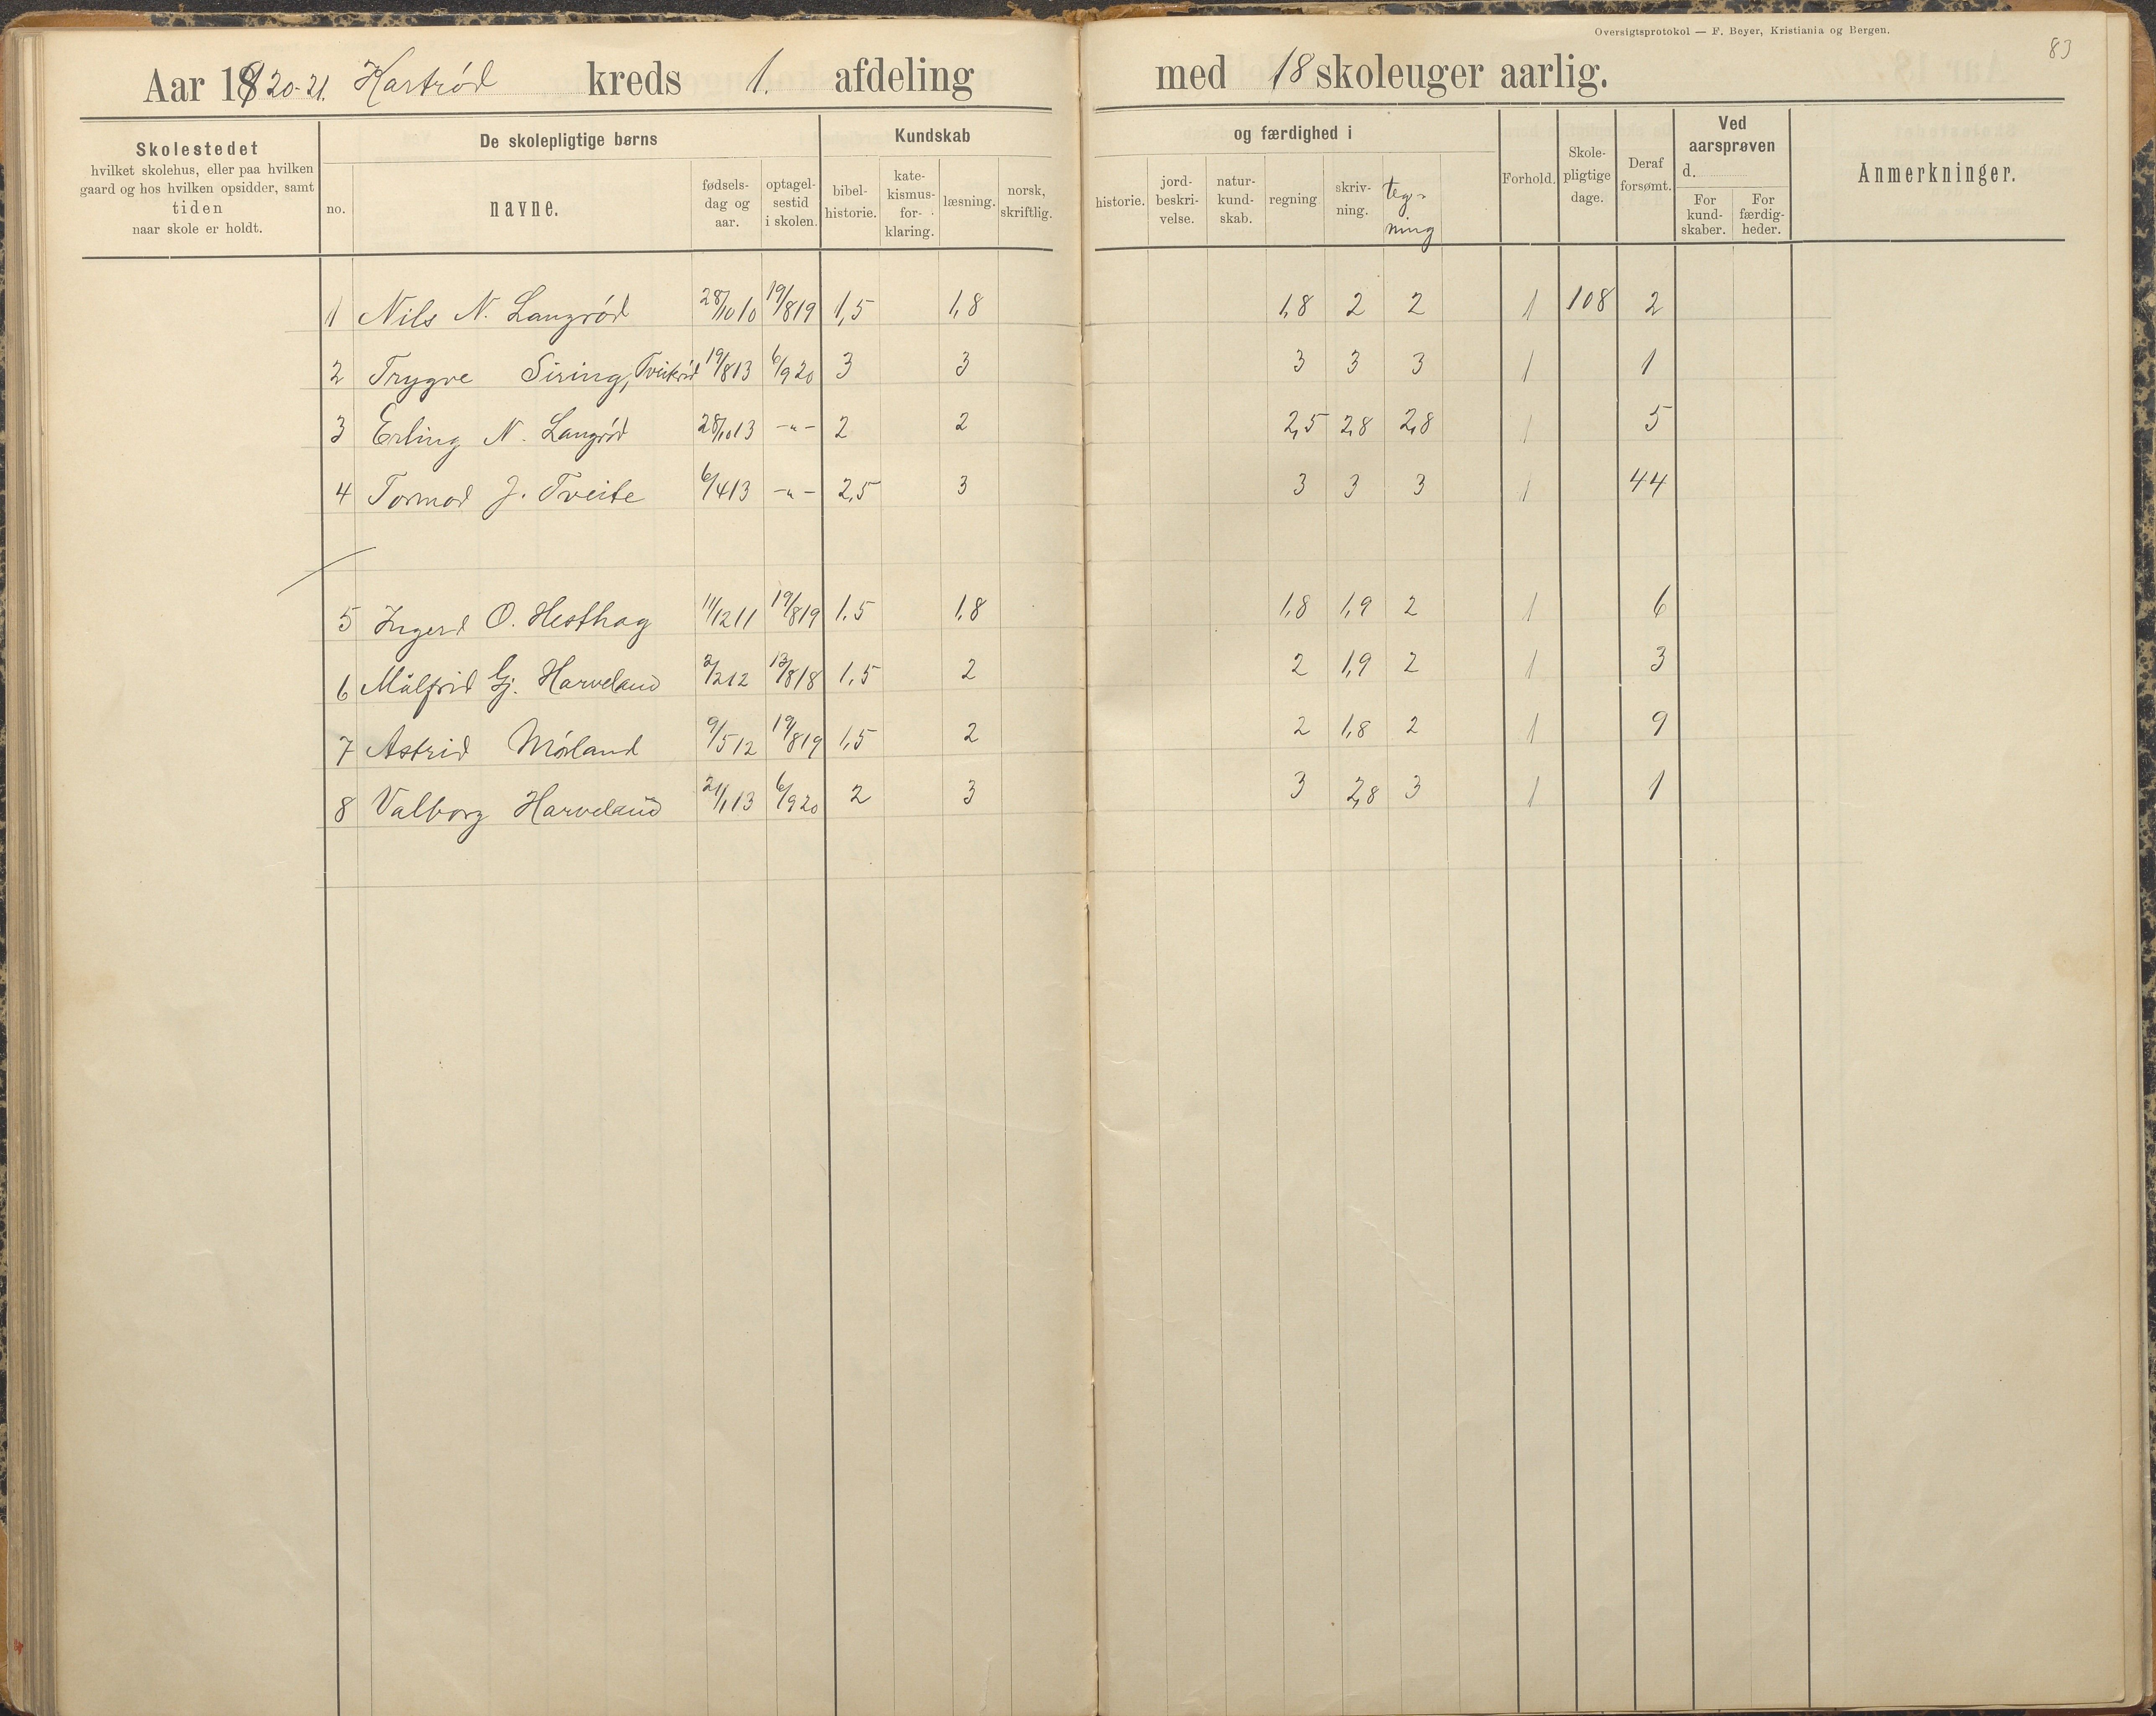 Oversigtsprotokol — F. Beyer, Kristiania og Bergen.
83
Aar 1920-21. Hartrød kreds 1. afdeling med 18 skoleuger aarlig.
Skolestedet
hvilket skolehus, eller paa hvilken
gaard og hos hvilken opsidder, samt
tiden
naar skole er holdt.
De skolepligtige børns
no.
navne.
fødsels-
dag og
aar.
optagel-
sestid
i skolen.
Kundskab
bibel-
historie.
kate-
kismus-
for-
klaring.
læsning.
norsk,
skriftlig.
og færdighed i
historie.
jord-
beskri-
velse.
natur-
kund-
skab.
regning
skriv-
ning.
teg-
ning
Forhold.
Skole-
pligtige
dage.
Deraf
forsømt.
Ved
aarsprøven
d.
For
kund-
skaber.
For
færdig-
heder.
Anmerkninger.
1 Nils N. Langrød 28/10 10 19/8 19 1,5 1,8 1,8 2 2 1 108 2
2 Trygve Siring, 19/8 13 6/9 20 3 3 3 3 3 1 1
3 Erling N. Langrød 28/10 13 -"- 2 2 2,5 2,8 2,8 1 5
4 Tormod J. Tveite 6/4 13 -"- 2,5 3 3 3 3 1 44
5 Ingerd O. Hesthag 11/12 11 19/8 19 1,5 1,8 1,8 1,9 2 1 6
6 Målfrid Gj. Harveland 2/2 12 13/8 18 1,5 2 2 1,9 2 1 3
7 Astrid Mørland 9/5 12 19/8 19 1,5 2 2 1,8 2 1 9
8 Valborg Harveland 21/1 13 6/9 20 2 3 3 2,8 3 1 1